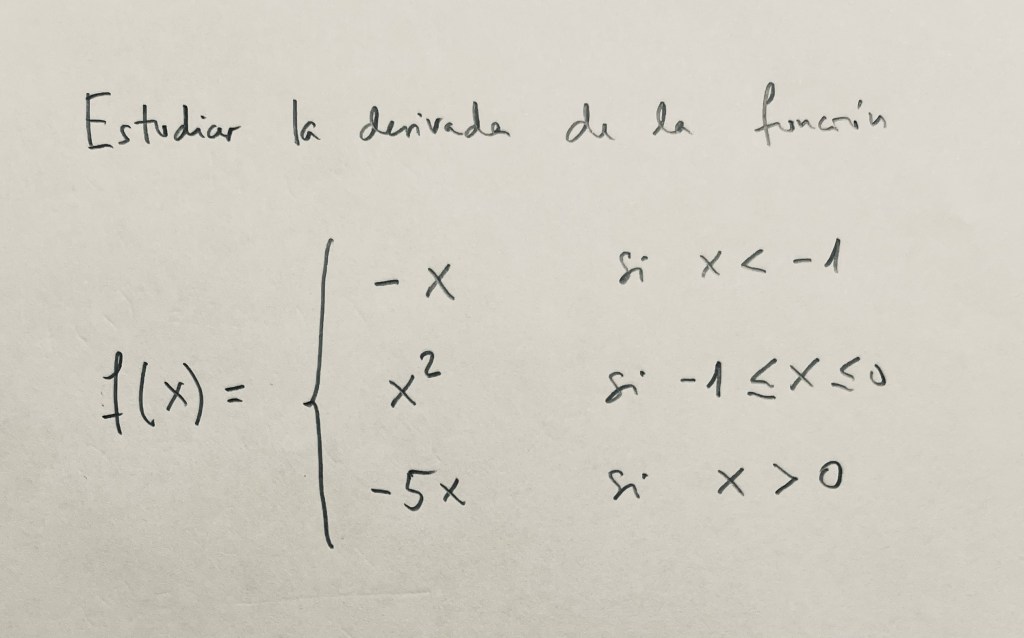 Estudiar la derivada de la función
- x si x < -1
f(x) = x² si -1 ≤ x ≤ 0
-5x si x > 0